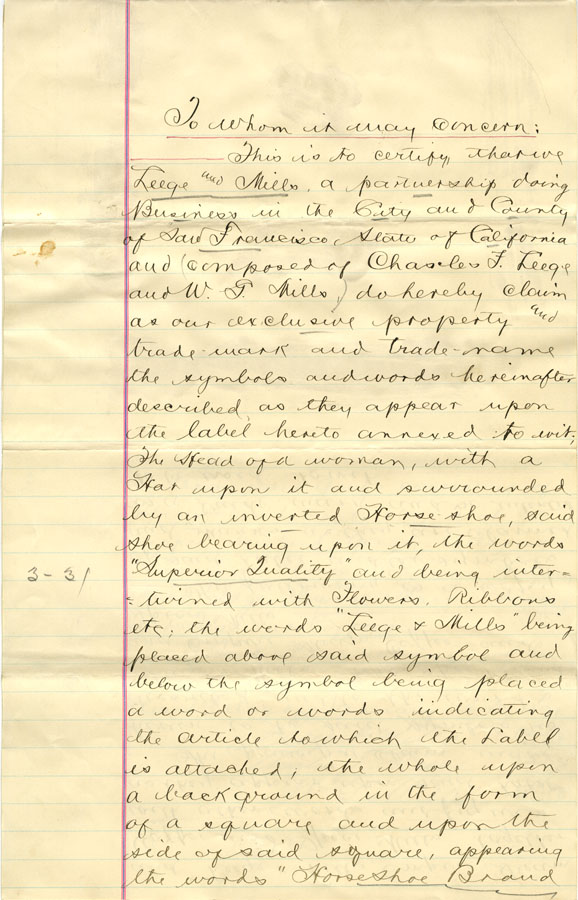 To whom it may concern:
This is to certify that we
Leege and Mills, a partnership doing
Business in the City and County
of San Francisco, State of California
and (composed of Charles F. Leege
and W. F. Mills,) do hereby claim
as our exclusive property and
trade-mark and trade-name
the symbols and words hereinafter
described, as they appear upon
the label hereto annexed to wit;
The Head of a woman, with a
Hat upon it and surrounded
by an inverted Horse shoe, said
shoe bearing upon it, the words
"Superior Quality" and being inter-
-twined with Flowers, Ribbons
etc; the words "Leege & Mills" being
placed above said symbol and
below the symbol being placed
a word or words indicating
the article to which the Label
is attached; the whole upon
a background in the form
of a square and upon the
side of said square, appearing
the words "Horseshoe Brand
3-31